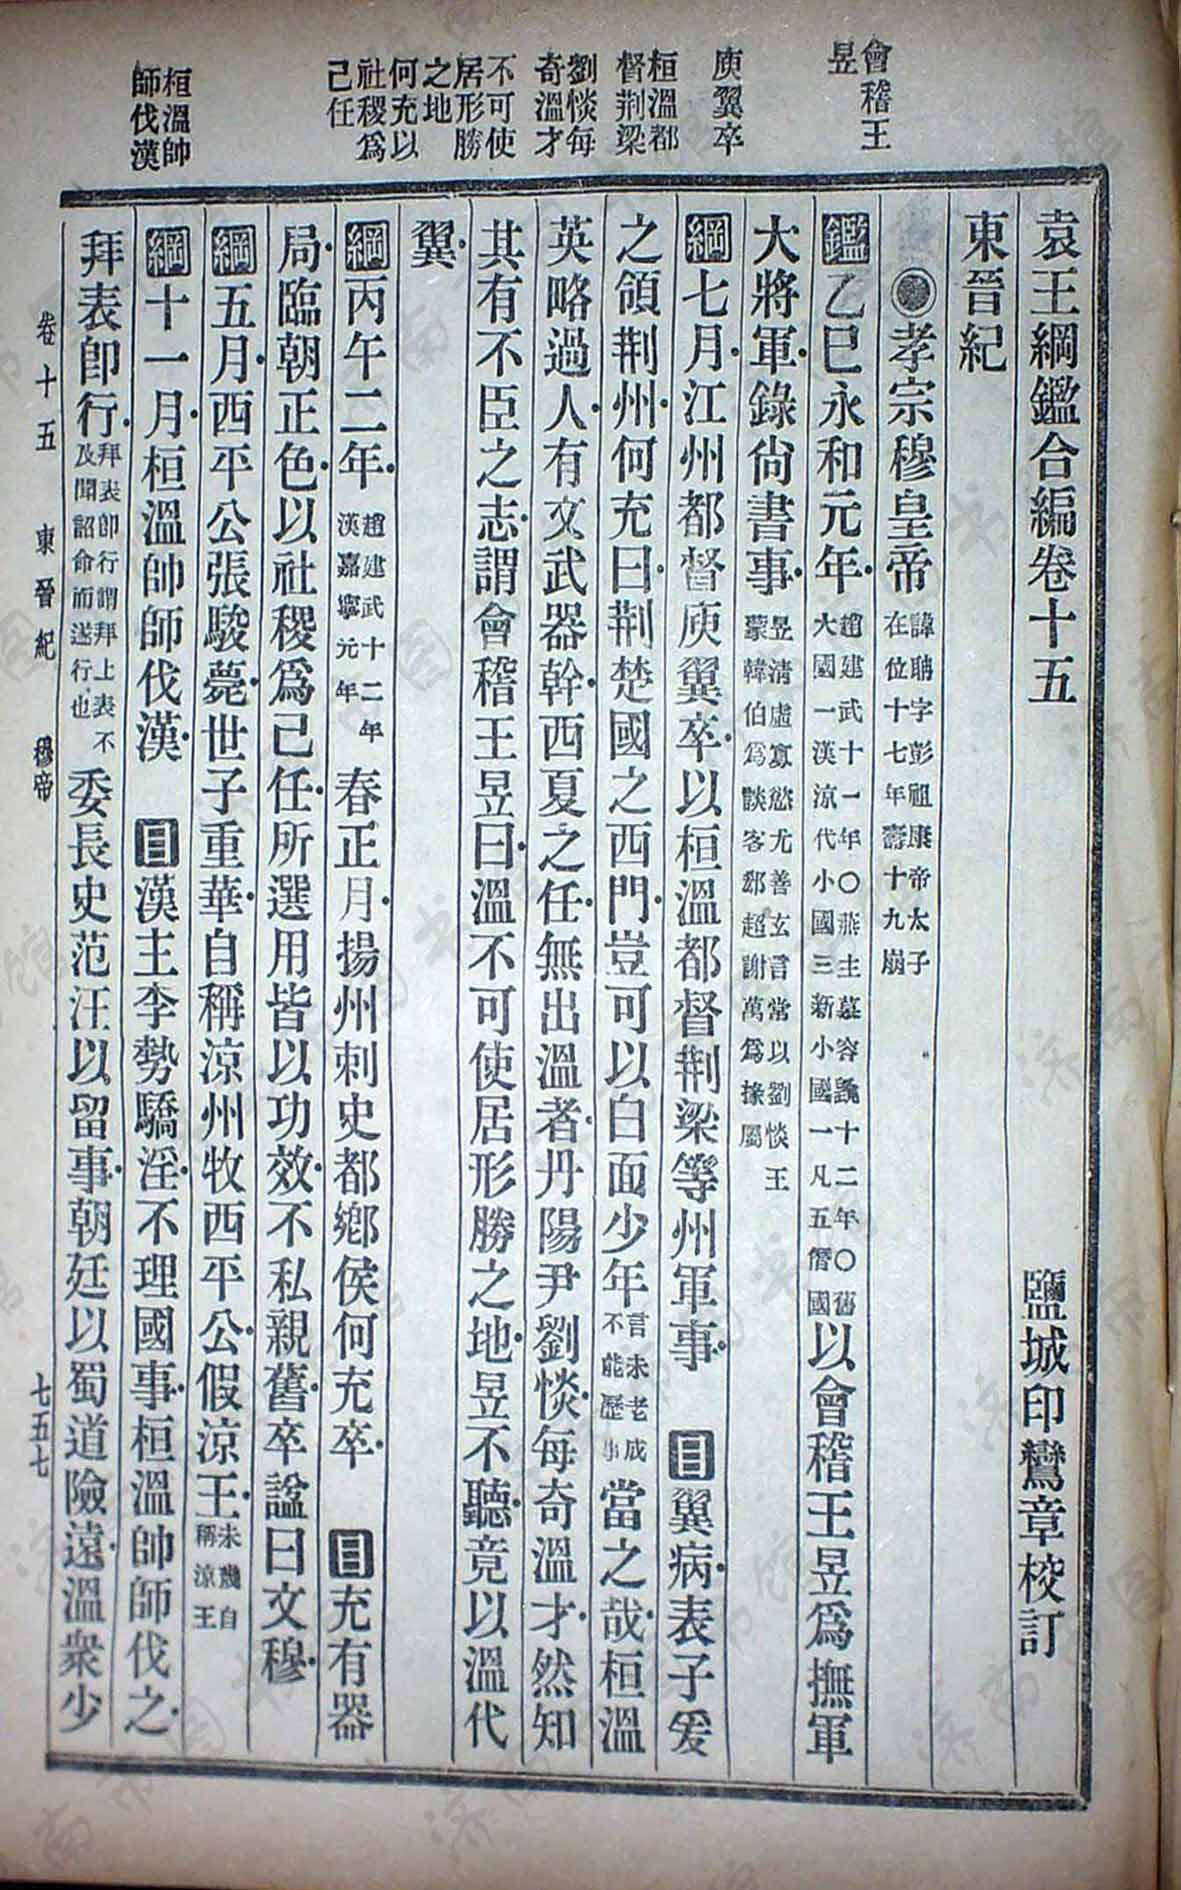 會稽王
昱
庾翼卒
桓溫都
督荆梁
劉惔每
奇溫才
不可使
居形勝
之地
何充以
社稷爲
己任
桓溫帥
師伐漢
袁王綱鑑合編卷十五 鹽城印鸞章校訂
東晉紀
孝宗穆皇帝 諱聃字彭祖康帝太子在位十七年壽十九崩
鑑乙巳永和元年 趙建武十一年〇燕主慕容皝十二年〇舊大國一漢涼代小國三新小國一凡五僭國 以會稽王昱爲撫軍
大將軍錄尙書事 昱清虛寡慾尤善玄言常以劉惔王蒙韓伯爲談客郄超謝萬爲掾屬
綱七月江州都督庾翼卒以桓溫都督荆梁等州軍事 目翼病表子爰
之領荆州何充曰荆楚國之西門豈可以白面少年 言未老成不能歷事 當之哉桓溫
英略過人有文武器幹西夏之任無出溫者丹陽尹劉惔每奇溫才然知
其有不臣之志謂會稽王昱曰溫不可使居形勝之地昱不聽竟以溫代
翼
綱丙午二年 趙建武十二年漢嘉寧元年 春正月揚州刺史都鄉侯何充卒 目充有器
局臨朝正色以社稷爲己任所選用皆以功效不私親舊卒諡曰文穆
綱五月西平公張駿薨世子重華自稱涼州牧西平公假涼王 未幾自稱涼王
綱十一月桓溫帥師伐漢 目漢主李勢驕淫不理國事桓溫帥師伐之
拜表卽行 拜表卽行謂拜上表不及聞詔命而遂行也 委長史范汪以留事朝廷以蜀道險遠溫衆少
卷十五 東晉紀 穆帝 七五七